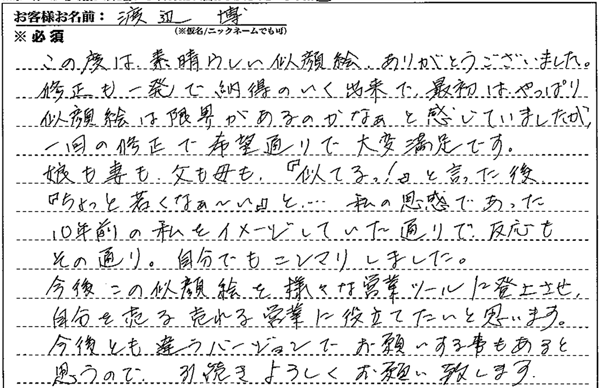 お客様お名前： 渡辺 博
(※仮名/ニックネームでも可)
※必須
この度は素晴らしい似顔絵、ありがとうございました。
修正も一発で納得のいく出来で、最初はやっぱり
似顔絵は限界があるのかなぁと感じていましたが、
一回の修正で希望通りで大変満足です。
娘も妻も、父も母も、『似てるっ！』と言った後
『ちょっと若くなぁ〜い』と…. 私の思惑であった
10年前の私をイメージしていた通りで、反応も
その通り。自分でもニンマリしました。
今後この似顔絵を様々な営業ツールに登上させ、
自分を売る売れる営業に役立てたいと思います。
今後とも違うバージョンでお願いする事もあると
思うので、引続きよろしくお願い致します。